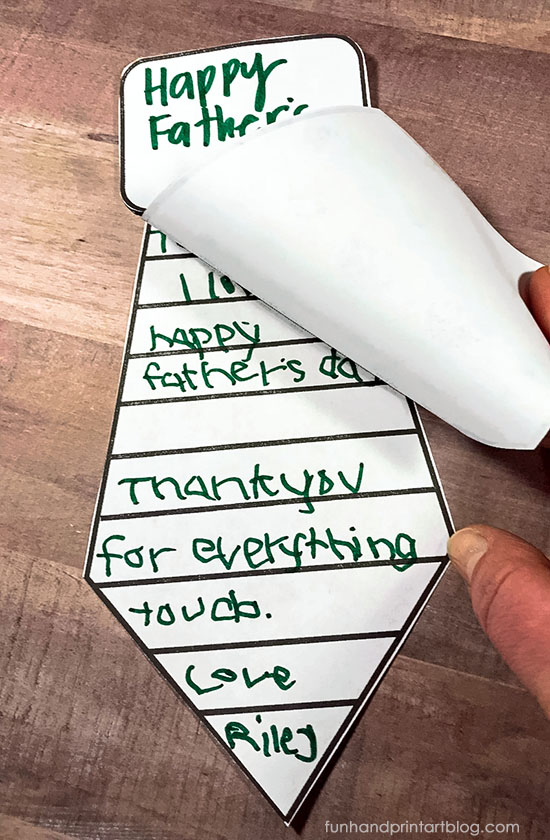 Happy
Father's
I
happy
father's da
Thankyou
for everything
you do.
Love
Riley
funhandprintartblog.com